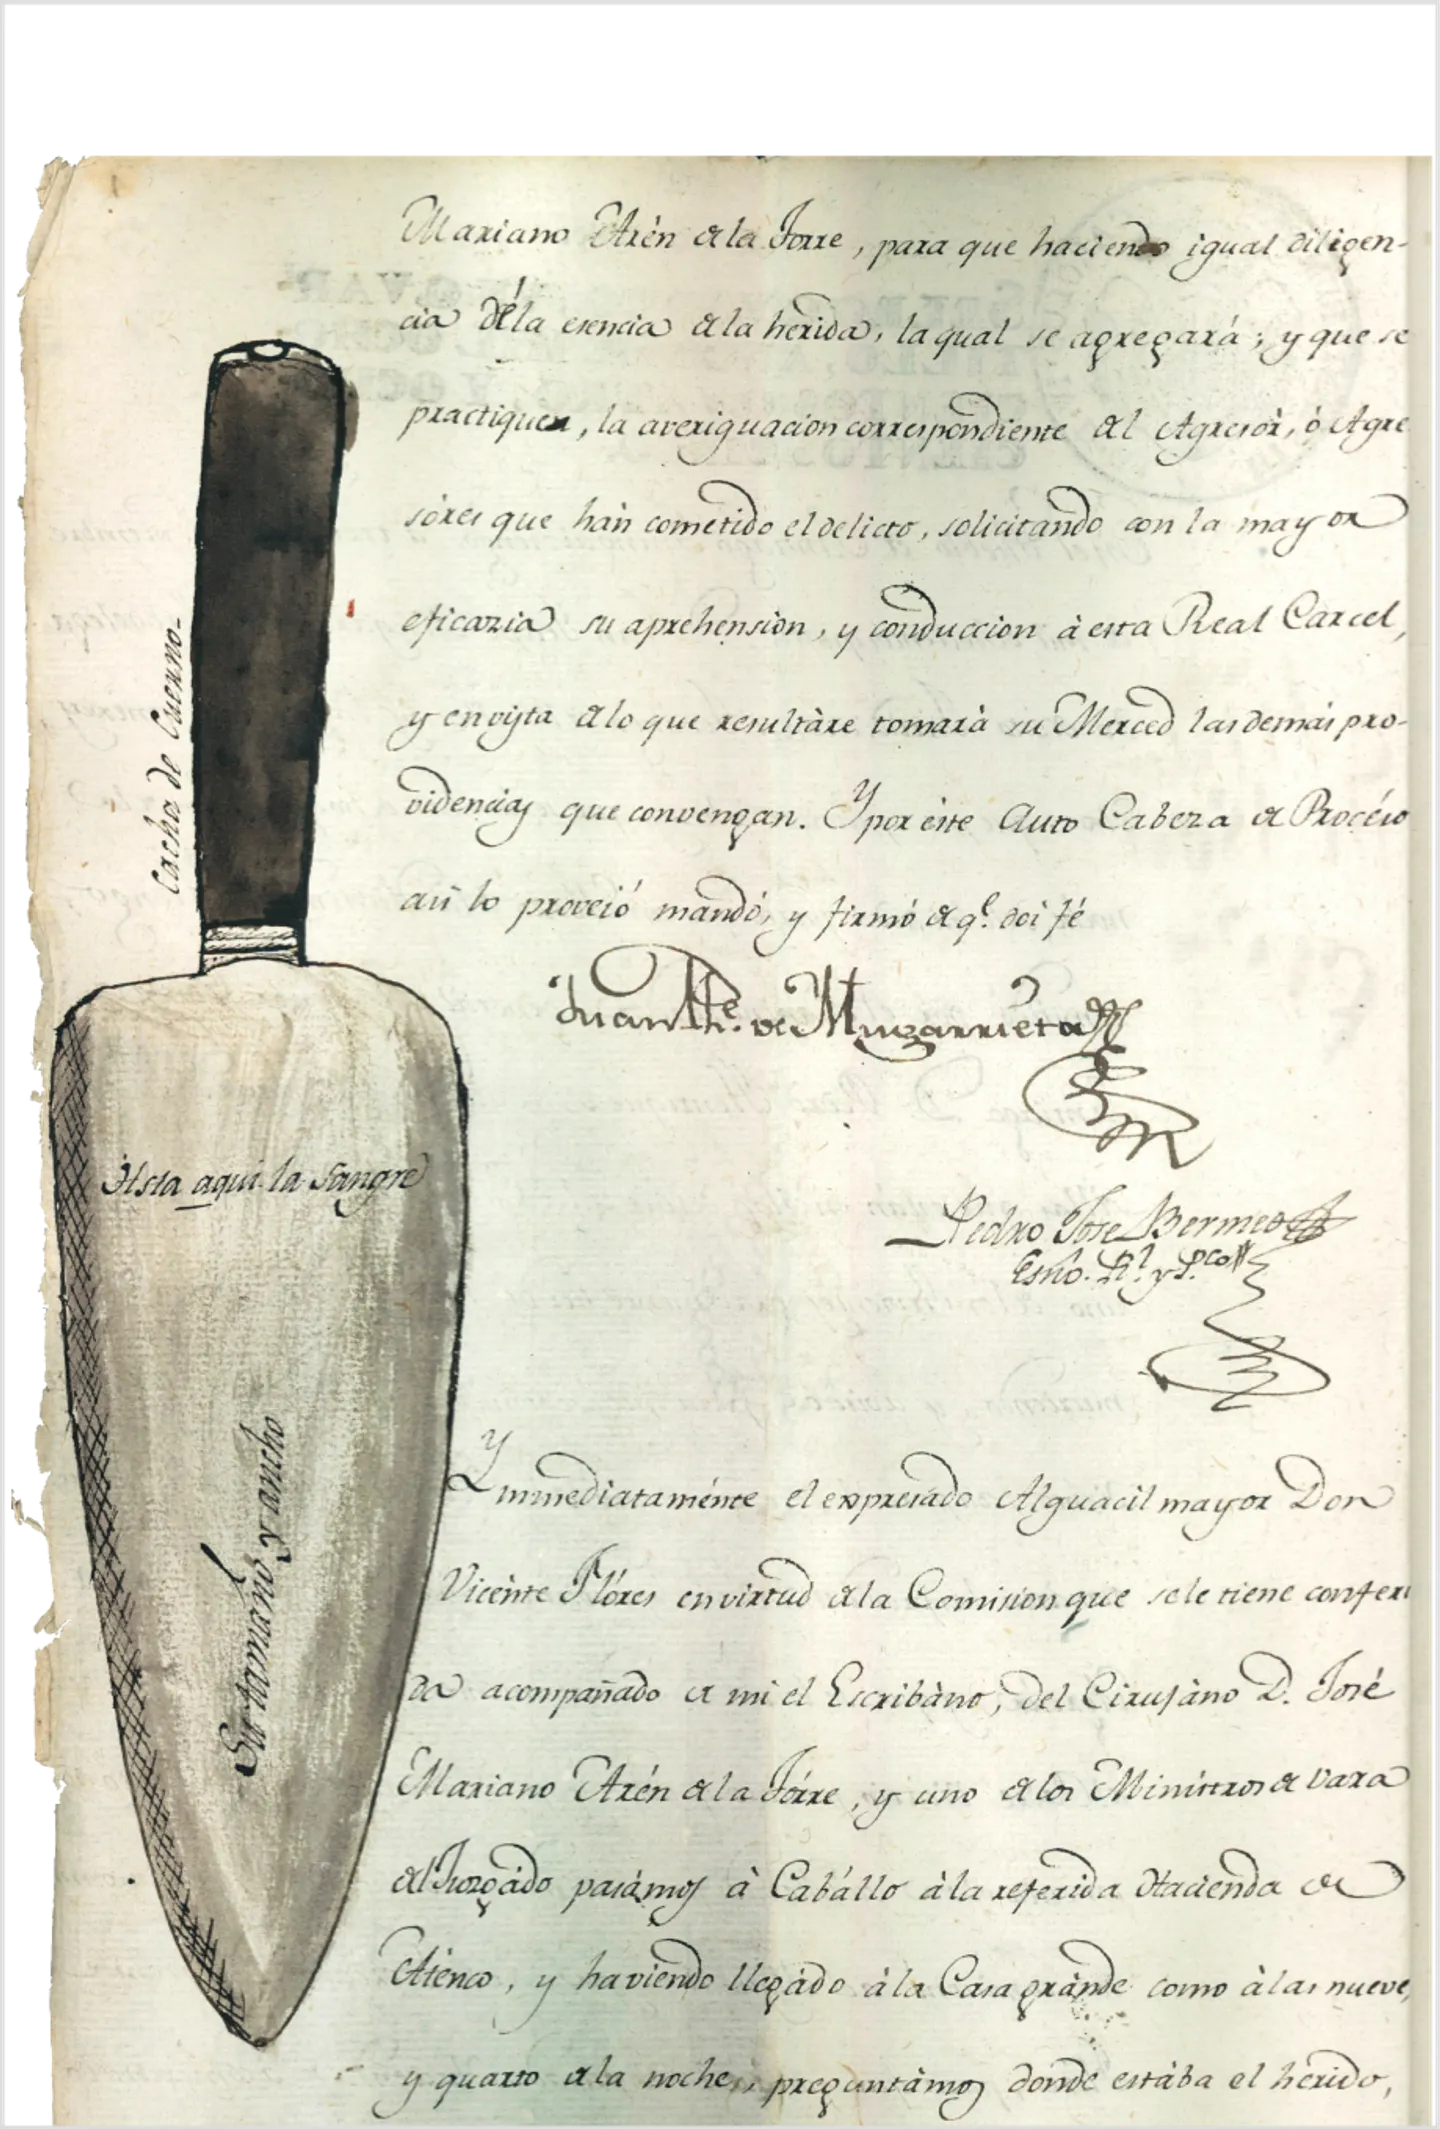 Mariano Arén de la Torre, para que haciendo igual diligen-
cia dé la esencia de la herida, la qual se agregará; y que se
practiquen, la averiguacion correspondiente del Agresór, ó Agre
sóres que hán cometido el delicto, solicitando con la mayor
eficazia su aprehension, y conduccion à esta Real Carcel,
y en vista de lo que resultàre tomarà su Merced las demás pro-
videncias que convengan. Y por éste Auto Cabeza de Procéso
asi lo proveió mandó, y firmó de q.e doi fé
Juan Ph.e de Muzarrieta
Pedro Jose Bermeo
Esño. R.l y P.co
Cacha de Cuerno.
Hsta aqui la Sangre
Su tamaño y ancho
Y inmediataménte el expresado Alguacil mayor Don
Vicènte Flóres en virtud de la Comision que se le tiene conferi
da acompañado de mi el Escribàno, del Cirujàno D. José
Mariano Arén de la Tórre, y uno de los Ministros de vara
del Juzgádo pasámos à Cabállo à la referida Hacienda de
Aténco, y haviendo llegádo à la Casa grànde como à las nueve,
y quarto de la noche, preguntàmos donde estàba el herido,